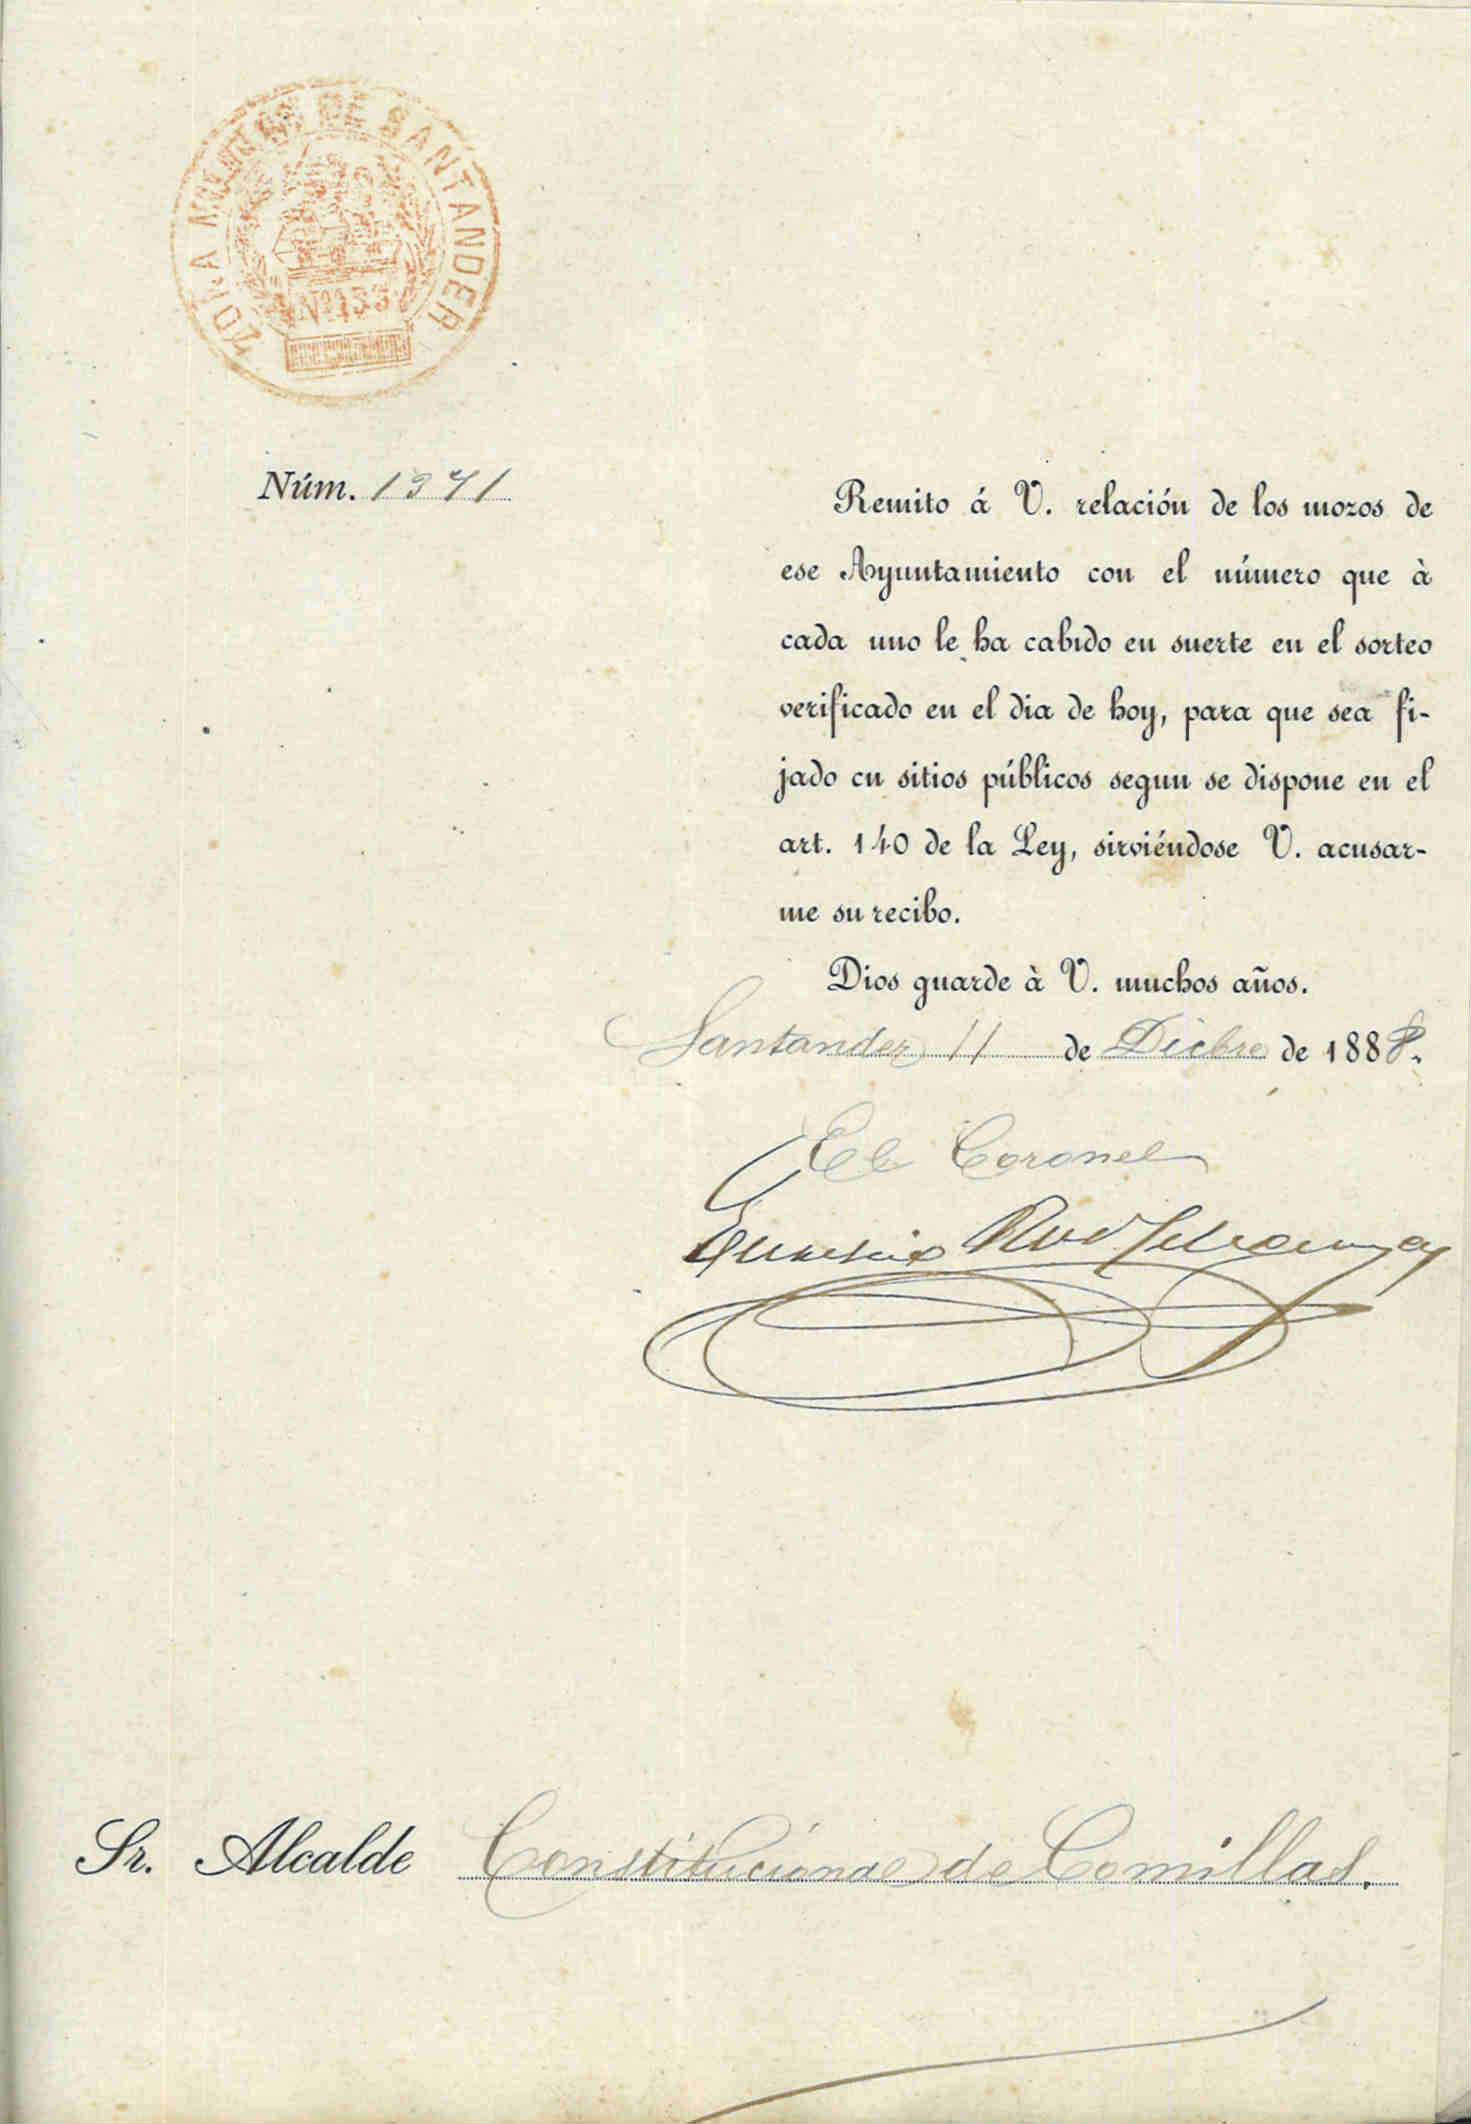 ZONA MILITAR DE SANTANDER
Nº 133
Núm. 1971
Remito á V. relación de los mozos de
ese Ayuntamiento con el número que à
cada uno le ha cabido en suerte en el sorteo
verificado en el dia de hoy, para que sea fi-
jado en sitios públicos segun se dispone en el
art. 140 de la Ley, sirviéndose V. acusar-
me su recibo.
Dios guarde à V. muchos años.
Santander 11 de Dicbre de 1888.
El Coronel
Sr. Alcalde Constitucional de Comillas.